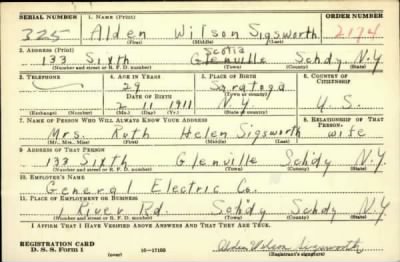 SERIAL NUMBER 1. NAME (Print) ORDER NUMBER
325 Alden Wilson Sigsworth 2174
(First) (Middle) (Last)
2. ADDRESS (Print) Scotia
133 Sixth Glenville Schdy N.Y.
(Number and street or R. F. D. number) (Town) (County) (State)
3. TELEPHONE 4. AGE IN YEARS 5. PLACE OF BIRTH 6. COUNTRY OF CITIZENSHIP
29 Saratoga
DATE OF BIRTH (Town or county)
2 11 1911 N.Y. U.S.
(Exchange) (Number) (Mo.) (Day) (Yr.) (State or country)
7. NAME OF PERSON WHO WILL ALWAYS KNOW YOUR ADDRESS 8. RELATIONSHIP OF THAT PERSON
Mrs. Ruth Helen Sigsworth wife
(Mr., Mrs., Miss) (First) (Middle) (Last)
9. ADDRESS OF THAT PERSON
133 Sixth Glenville Schdy N.Y.
(Number and street or R. F. D. number) (Town) (County) (State)
10. EMPLOYER'S NAME
General Electric Co.
11. PLACE OF EMPLOYMENT OR BUSINESS
1 River Rd. Schdy Schdy N.Y.
(Number and street or R. F. D. number) (Town) (County) (State)
I AFFIRM THAT I HAVE VERIFIED ABOVE ANSWERS AND THAT THEY ARE TRUE.
REGISTRATION CARD
D. S. S. FORM 1 (over) 16—17105 Alden Wilson Sigsworth
(Registrant's signature)